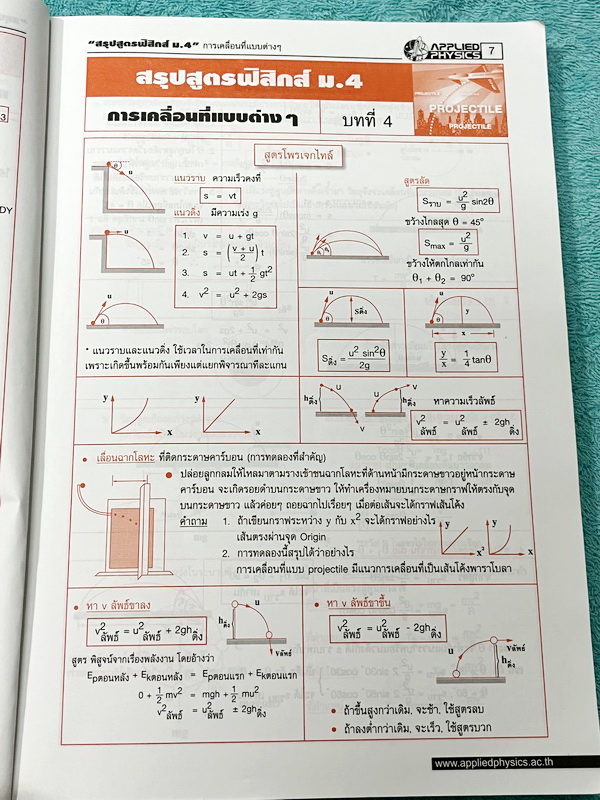 "สรุปสูตรฟิสิกส์ ม.4" การเคลื่อนที่แบบต่างๆ
APPLIED PHYSICS 7
สรุปสูตรฟิสิกส์ ม.4
การเคลื่อนที่แบบต่าง ๆ
บทที่ 4
PROJECTILE
PROJECTILE
PROJECTILE
สูตรโพรเจกไทล์
θ u
แนวราบ ความเร็วคงที่
s = vt
แนวดิ่ง มีความเร่ง g
1. v = u + gt
2. s = ((v + u)/2) t
3. s = ut + ½ gt²
4. v² = u² + 2gs
u
u θ
* แนวราบและแนวดิ่ง ใช้เวลาในการเคลื่อนที่เท่ากัน
เพราะเกิดขึ้นพร้อมกันเพียงแต่แยกพิจารณาทีละแกน
สูตรลัด
Sราบ = u²/g sin2θ
ขว้างไกลสุด θ = 45°
Smax = u²/g
ขว้างให้ตกไกลเท่ากัน
θ₁ + θ₂ = 90°
u θ Sดิ่ง
Sดิ่ง = u² sin²θ / 2g
u θ y
x
y/x = ¼ tanθ
y x
y x
hดิ่ง u v
u v hดิ่ง
หาความเร็วลัพธ์
v²ลัพธ์ = u²ลัพธ์ ± 2ghดิ่ง
• เลื่อนฉากโลหะ ที่ติดกระดาษคาร์บอน (การทดลองที่สำคัญ)
• ปล่อยลูกกลมให้ไหลมาตามรางเข้าชนฉากโลหะที่ด้านหน้ามีกระดาษขาวอยู่หน้ากระดาษ
คาร์บอน จะเกิดรอยดำบนกระดาษขาว ให้ทำเครื่องหมายบนกระดาษกราฟให้ตรงกับจุด
บนกระดาษขาว แล้วค่อยๆ ถอยฉากไปเรื่อยๆ เมื่อต่อเส้นจะได้กราฟเส้นโค้ง
คำถาม 1. ถ้าเขียนกราฟระหว่าง y กับ x² จะได้กราฟอย่างไร
เส้นตรงผ่านจุด Origin
2. การทดลองนี้สรุปได้ว่าอย่างไร
การเคลื่อนที่แบบ projectile มีแนวการเคลื่อนที่เป็นเส้นโค้งพาราโบลา
y x²
y x
• หา v ลัพธ์ขาลง
v²ลัพธ์ = u²ลัพธ์ + 2ghดิ่ง
u
hดิ่ง
vลัพธ์
สูตร พิสูจน์จากเรื่องพลังงาน โดยอ้างว่า
Epตอนหลัง + Ekตอนหลัง = Epตอนแรก + Ekตอนแรก
0 + ½ mv² = mgh + ½ mu²
v²ลัพธ์ = u²ลัพธ์ ± 2ghดิ่ง
• หา v ลัพธ์ขาขึ้น
v²ลัพธ์ = u²ลัพธ์ - 2ghดิ่ง
vลัพธ์
hดิ่ง
u
• ถ้าขึ้นสูงกว่าเดิม, จะช้า, ใช้สูตรลบ
• ถ้าลงต่ำกว่าเดิม, จะเร็ว, ใช้สูตรบวก
www.appliedphysics.ac.th
3
DY